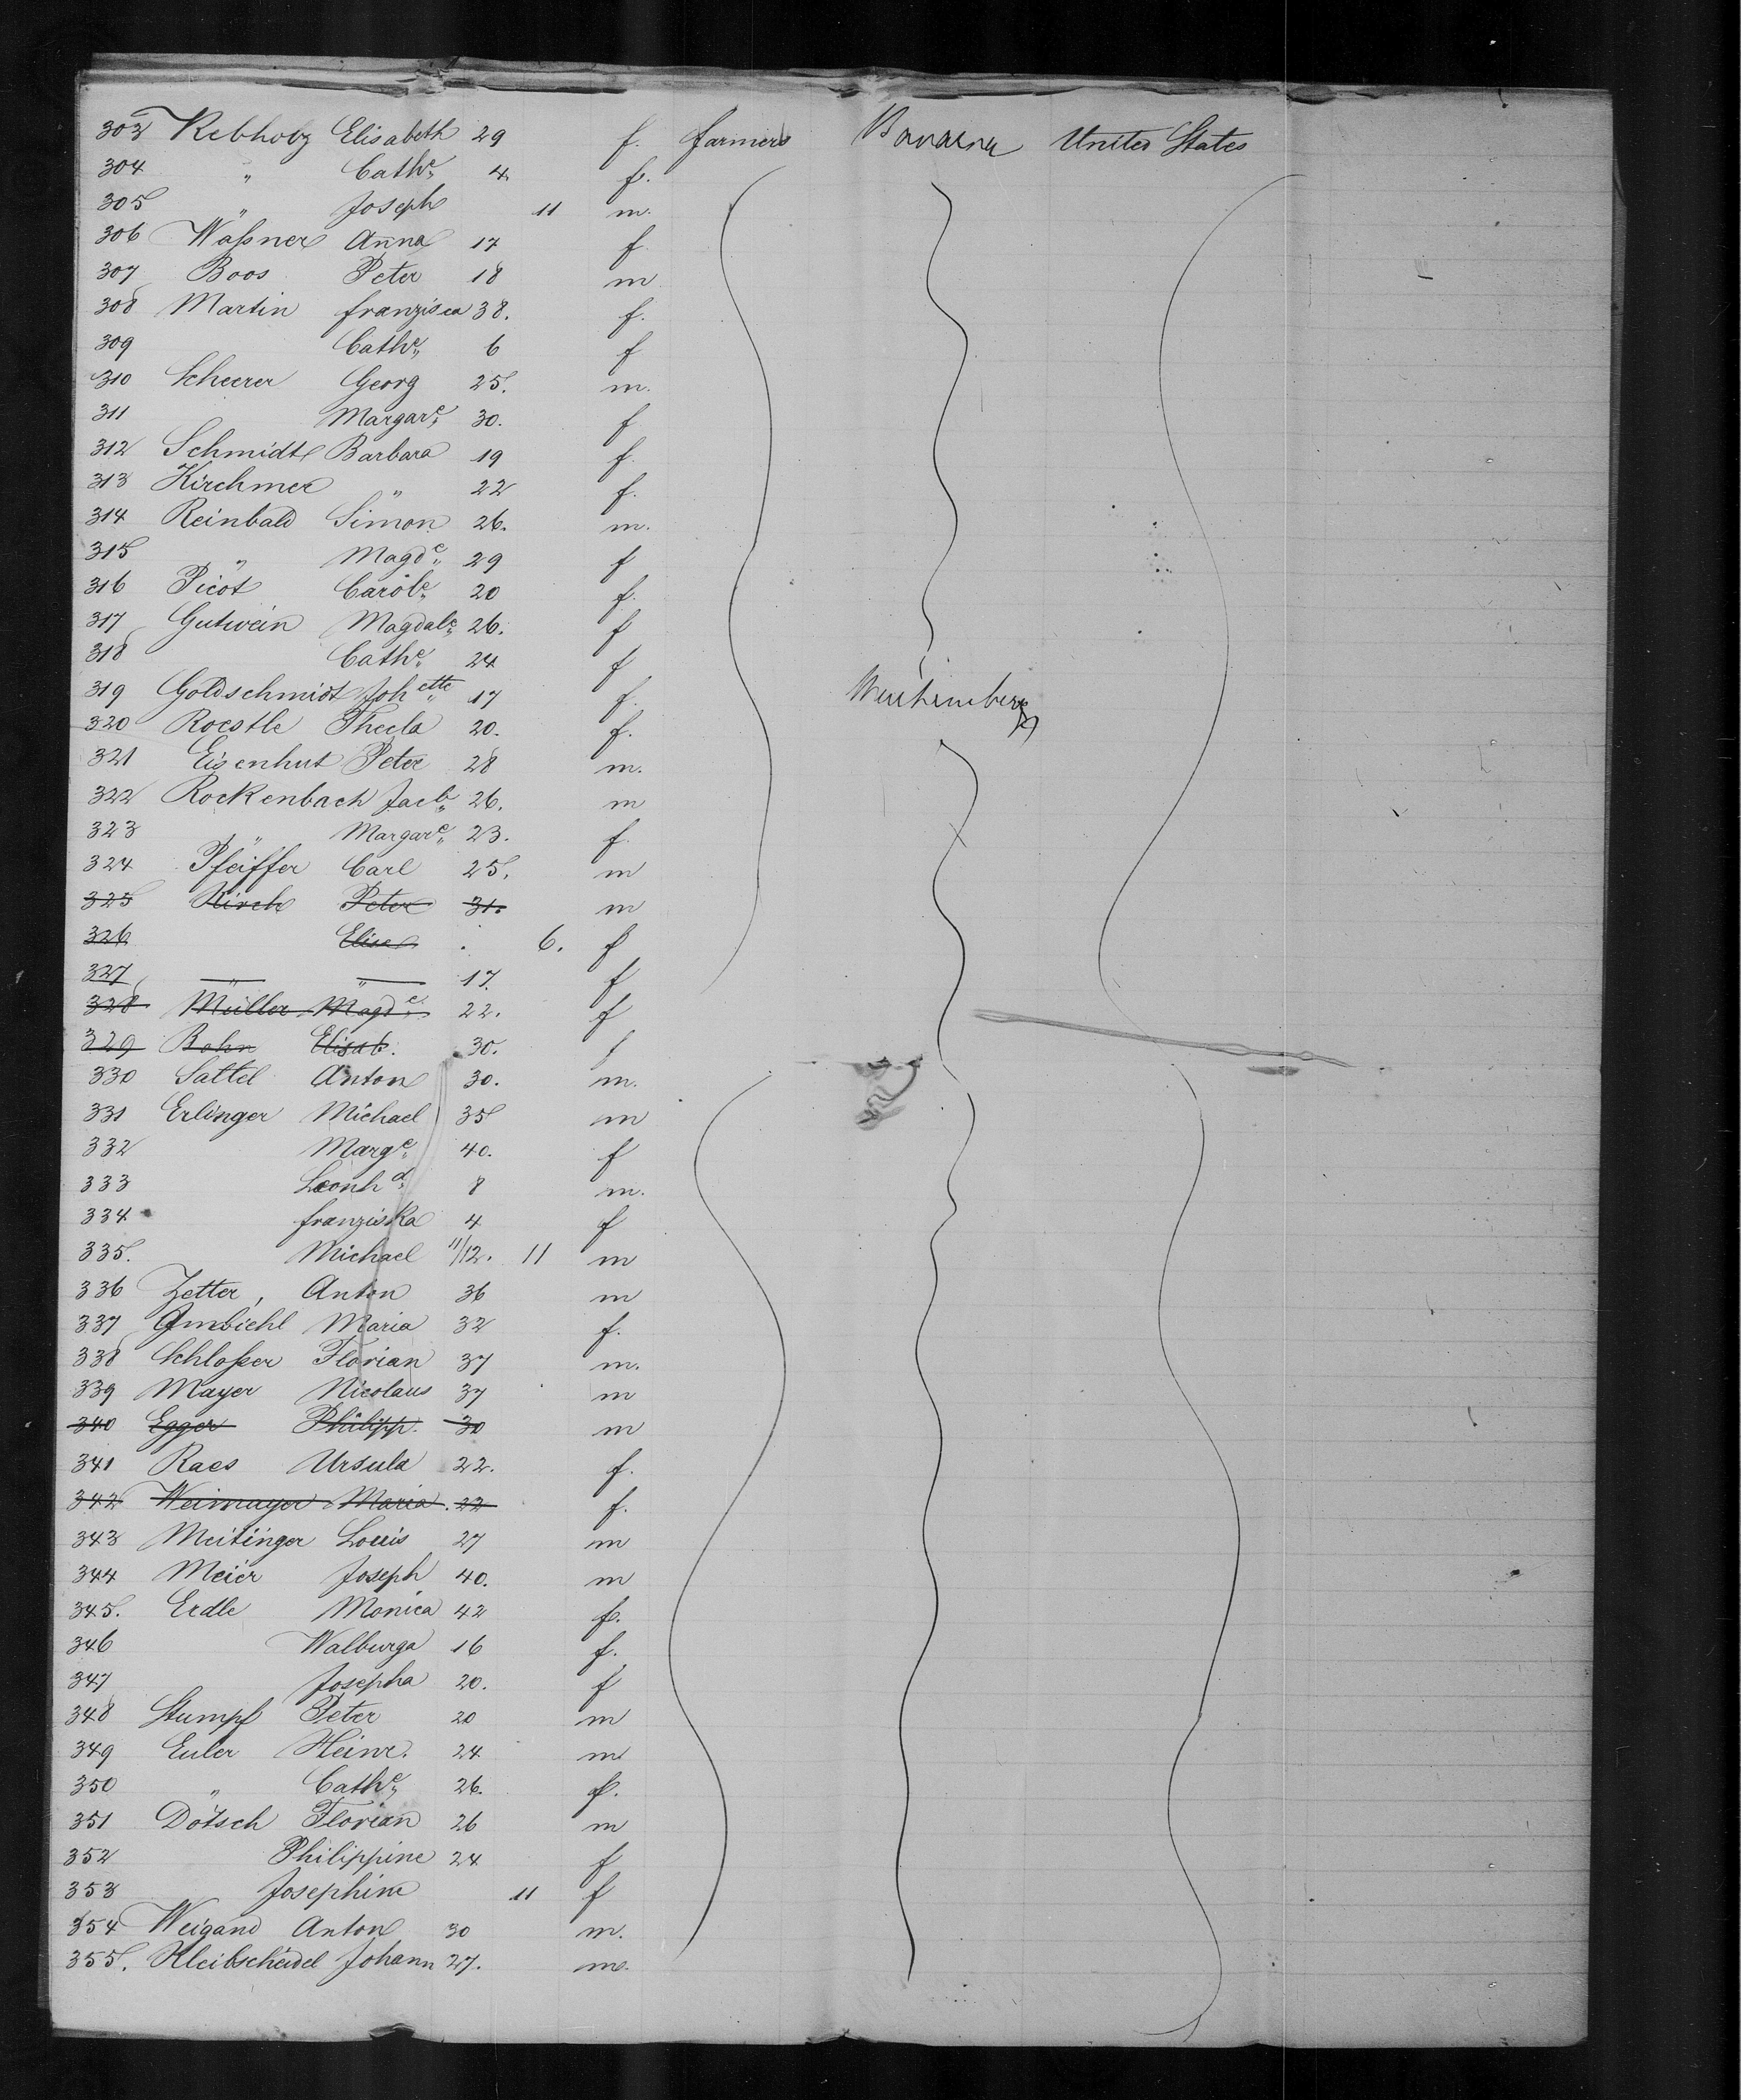 303 Rebholz Elisabeth 29 f. farmers Bavaria United States
304 " Cathe. 4 f.
305 " Joseph 11 m.
306 Waßner Anna 17 f
307 Boos Peter 18 m
308 Martin franzisca 38. f.
309 Cathe. 6 f
310 Scheerer Georg 25. m.
311 Margare. 30. f
312 Schmidt Barbara 19 f.
313 Kirchmer " 22 f.
314 Reinbald Simon 26. m.
315 " Magde. 29 f
316 Picot Carole. 20 f.
317 Gutwein Magdale. 26. f
318 Cathe. 24 f
319 Goldschmidt Johette 17 f. Wurtemberg
320 Roestle Thecla 20. f.
321 Eisenhut Peter 28 m.
322 Rockenbach Jacb. 26. m
323 " Margare. 23. f.
324 Pfeiffer Carl 25. m
325 Kirch Peter 31. m
326 Elise 6. f
327 " " 17. f
328 Müller Magde. 22. f
329 Bohn Elisab. 30. f
330 Sattel Anton 30. m.
331 Erlinger Michael 35 m
332 Marge. 40. f
333 Leonhd. 8 m.
334 franziska 4 f
335. Michael 11/12. 11 m
336 Zetter, Anton 36 m
337 Gmbiehl Maria 32 f.
338 Schloßer Florian 37 m.
339 Mayer Nicolaus 37 m
340 Egger Philipp. 30 m
341 Raes Ursula 22. f.
342 Weimayer Maria. 22 f.
343 Meitinger Louis 27 m
344 Meier Joseph 40. m
345. Erdle Monica 42 f.
346 Walburga 16 f.
347 Josepha 20. f
348 Stumpf Peter 20 m
349 Euler Heinr. 24 m
350 " Cathe. 26. f.
351 Dötsch Florian 26 m
352 Philippine 24 f
353 Josephine 11 f
354 Weigand Anton 30 m.
355. Kleibscheidel Johann 27. m.